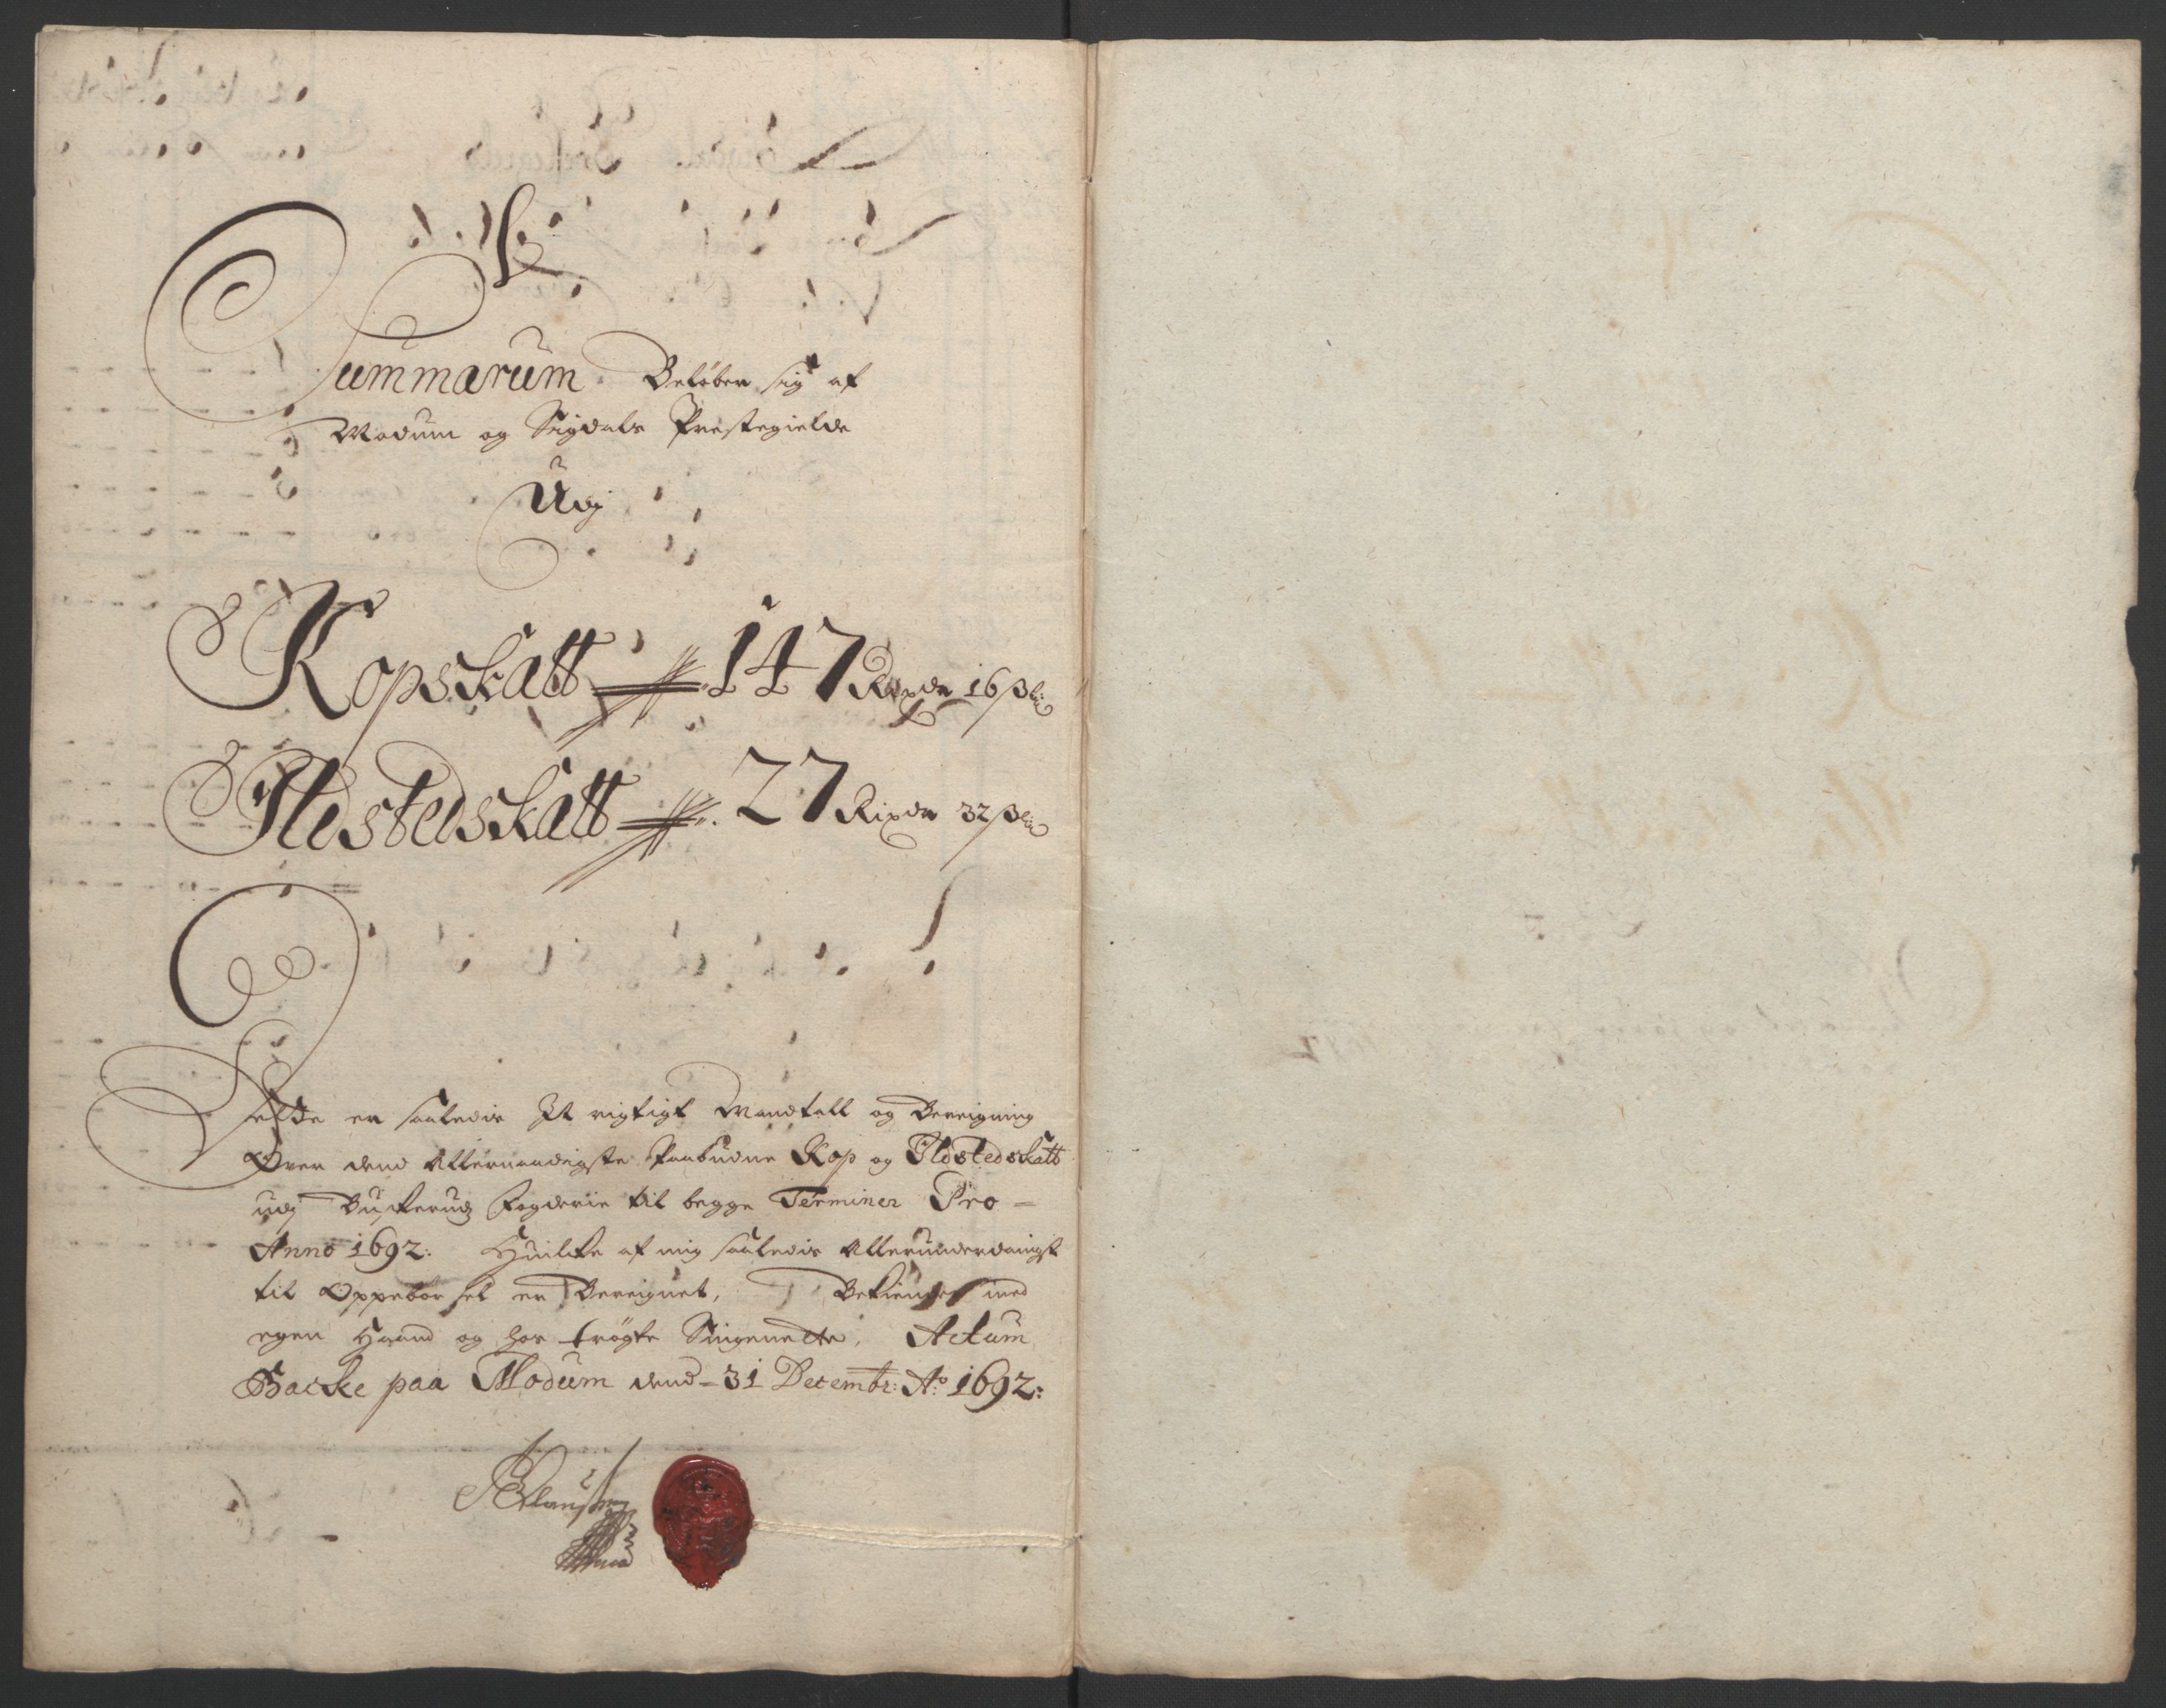 Summarum Beløber sig af
Modum og Sigdals Prestegielde
Udj
Kopskatt 147 Rixdr 16 ß
Ildstedskatt 27 Rixdr 32 ß
Dette er saaledis Et rigtigt Mandtall og Bereigning
Over dend Allernaadigste Paabudne Kop og Ildstedskatt
udj Buskerudz Fogderie til begge Terminer Pro
Anno 1692: Huilcke af mig saaledis Allerunderdanigst
til Oppebørsel er Bereignet, Bekiender med
egen Haand og hos trøgte Singenette, Actum
Backe paa Modum dend 31 Decembr: Ao 1692: